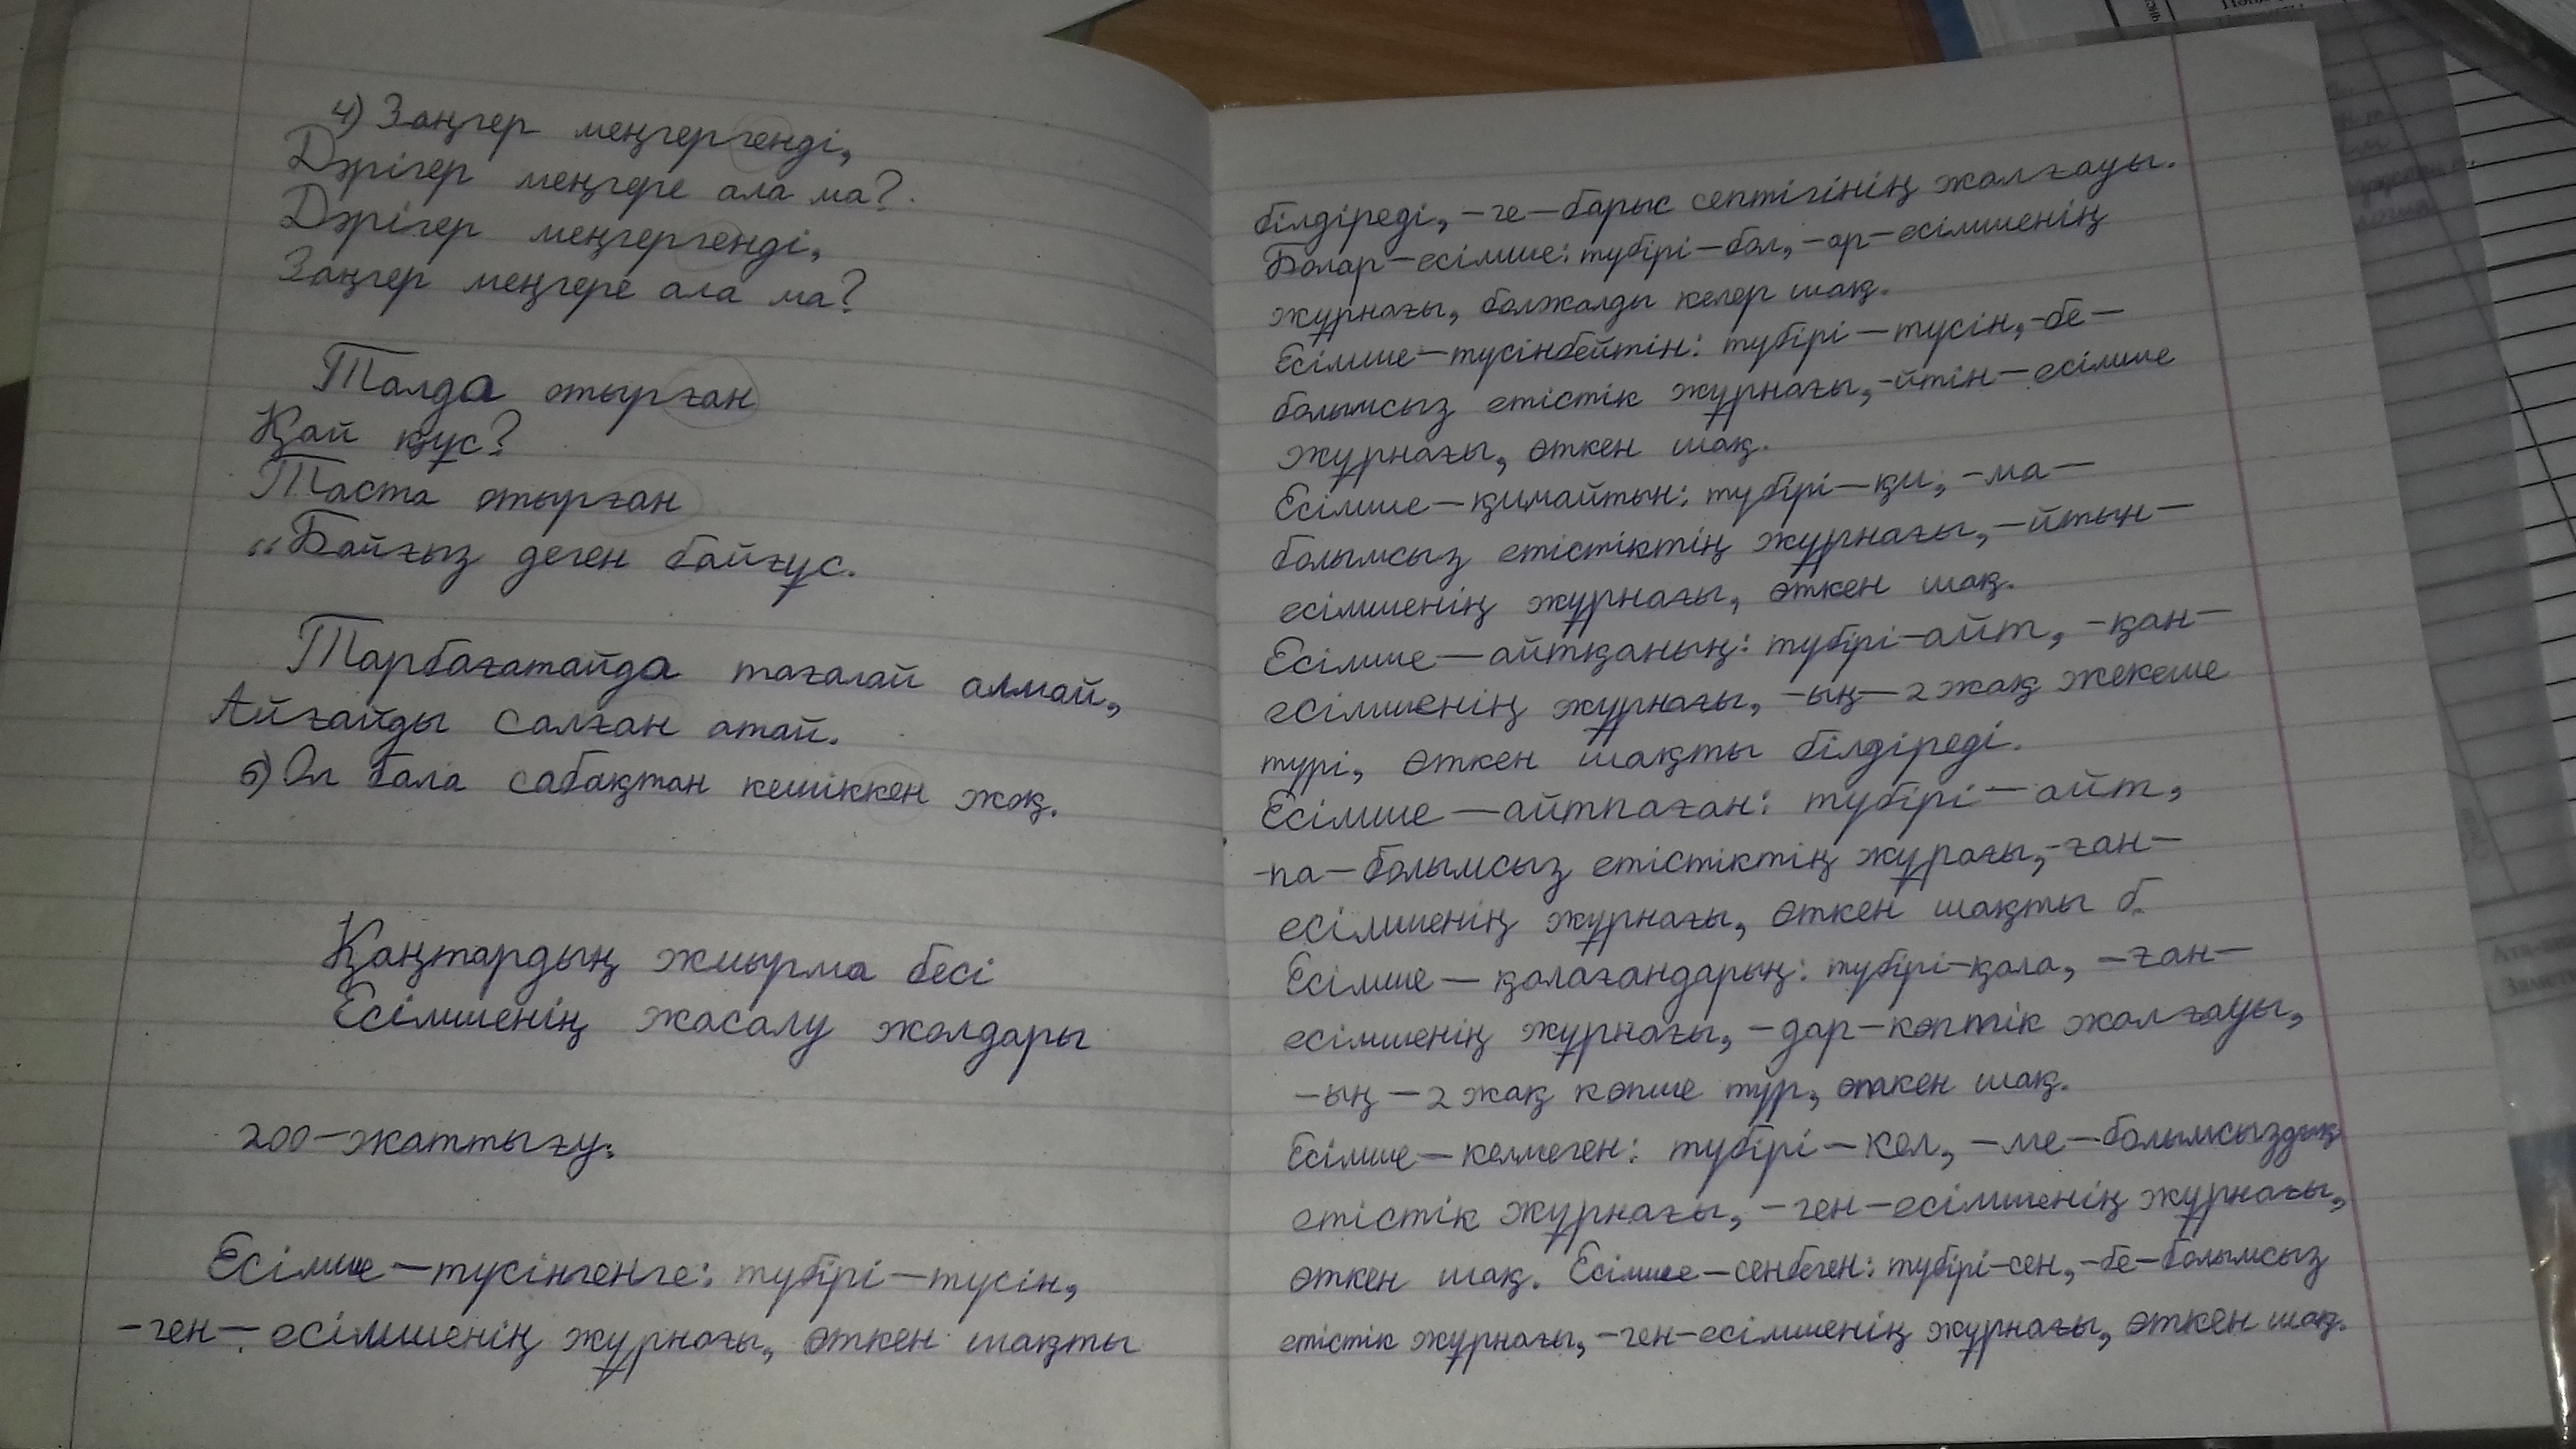 4) Заңгер меңгергенді,
Дәрігер меңгере ала ма?
Дәрігер меңгергенді,
Заңгер меңгере ала ма?
Талда отырған
Қай құс?
Таста отырған
"Байғыз деген байғұс.
Тарбағатайда тағалай алмай,
Айғайды салған атай.
5) Ол бала сабақтан кешіккен жоқ.
Қаңтардың жиырма бесі
Есімшенің жасалу жолдары
200-жаттығу:
Есімше – түсінгенге: түбірі – түсін,
-ген – есімшенің жұрнағы, өткен шақты
білдіреді, -ге – барыс септігінің жалғауы.
Болар – есімше: түбірі – бол, -ар – есімшенің
жұрнағы, болжалды келер шақ.
Есімше – түсінбейтін: түбірі – түсін, -бе –
болымсыз етістік жұрнағы, -йтін – есімше
жұрнағы, өткен шақ.
Есімше – қимайтын: түбірі – қи, -ма –
болымсыз етістіктің жұрнағы, -йтын –
есімшенің жұрнағы, өткен шақ.
Есімше – айтқаның: түбірі – айт, -қан –
есімшенің жұрнағы, -ың – 2 жақ жекеше
түрі, өткен шақты білдіреді.
Есімше – айтпаған: түбірі – айт,
-па – болымсыз етістіктің жұрағы, -ған –
есімшенің жұрнағы, өткен шақты б.
Есімше – қалағандарың: түбірі – қала, -ған –
есімшенің жұрнағы, -дар – көптік жалғауы,
-ың – 2 жақ көпше түр, өткен шақ.
Есімше – келмеген: түбірі – кел, -ме – болымсыздық
етістік жұрнағы, -ген – есімшенің жұрнағы,
өткен шақ. Есімше – сенбеген: түбірі – сен, -бе – болымсыз
етістік жұрнағы, -ген – есімшенің жұрнағы, өткен шақ.